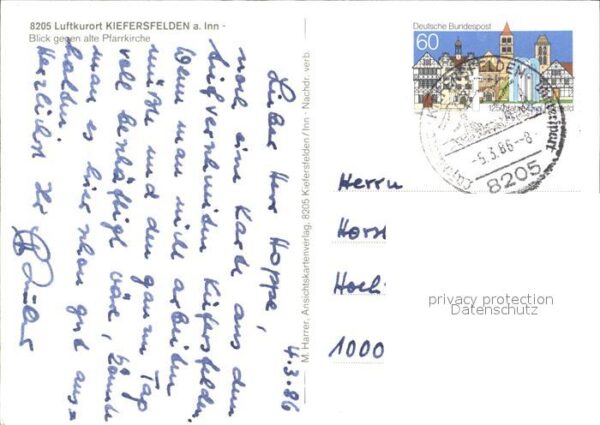 8205 Luftkurort KIEFERSFELDEN a. Inn -
Blick gegen alte Pfarrkirche
4.3.86
Lieber Herr Hoppe,
noch eine Karte aus dem
Kiefersfelden.
Wenn man nicht arbeiten
müßte und den ganzen Tag
voll beschäftigt wäre, könnte
man es hier schon gut aus=
halten.
Herzlichst Ihr
M. Harrer, Ansichtskartenverlag, 8205 Kiefersfelden/Inn · Nachdr. verb.
Deutsche Bundespost
60
-5.3.86--8
8205
Herrn
Horst
Hoch
1000
privacy protection
Datenschutz